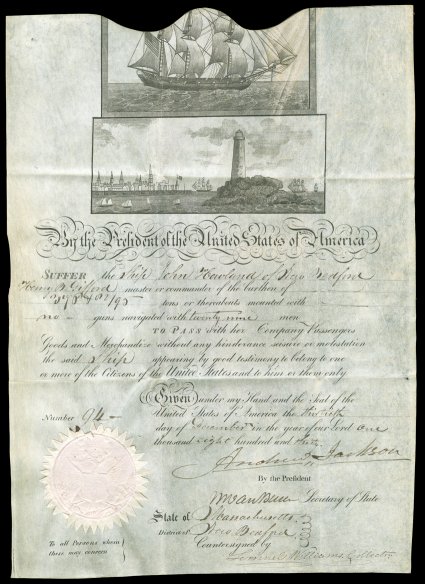 By the President of the United States of America
SUFFER the Ship John Howland of New Bedford
Henry B Gifford master or commander of the burthen of
tons or thereabouts mounted with
no guns navigated with twenty nine men
TO PASS with her Company Passengers
Goods and Merchandize without any hinderance seisure or molestation
the said Ship appearing by good testimony to belong to one
or more of the Citizens of the United States and to him or them only
Given under my Hand and the Seal of the
United States of America the thirtieth
day of December in the year of our Lord one
thousand eight hundred and thirty
Number 94
Andrew Jackson
By the President
M Van Buren Secretary of State
State of Massachusetts
District of New Bedford
Countersigned by
Lemuel Williams, Collector
To all Persons whom
these may concern